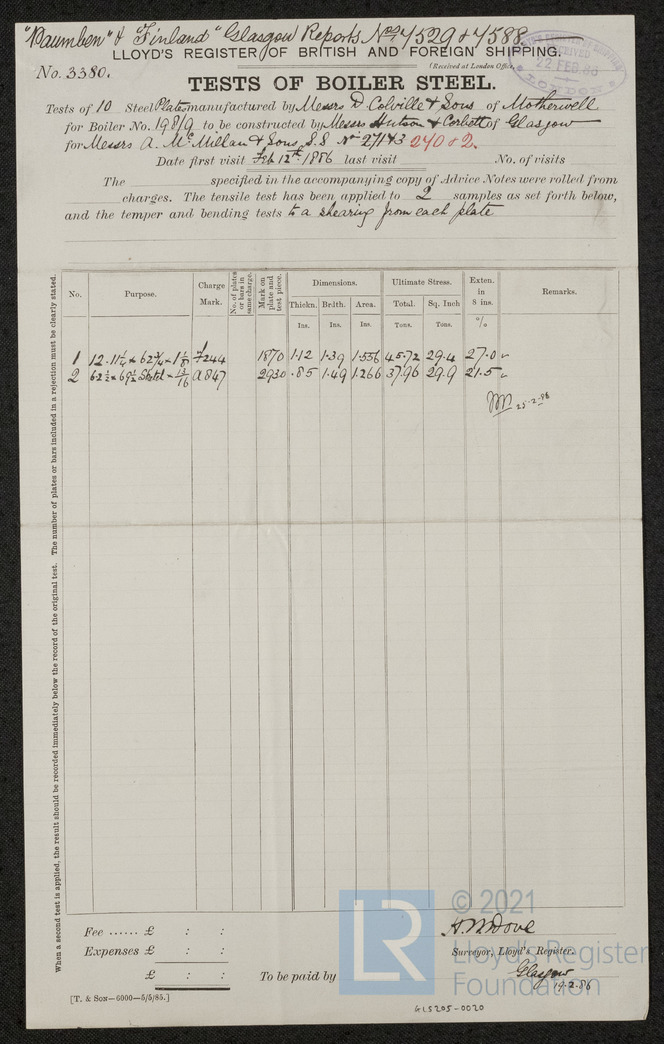 "Paumben" & "Finland" Glasgow Reports Nos 7529 & 7588
LLOYD'S REGISTER OF BRITISH AND FOREIGN SHIPPING.
No. 3380.
(Received at London Office,
22 FEB 86
LONDON
TESTS OF BOILER STEEL.
Tests of 10 Steel Plates manufactured by Messrs D. Colville & Sons of Motherwell
for Boiler No. 198/9 to be constructed by Messrs Hutson & Corbett of Glasgow
for Messrs A. McMillan & Sons S.S. No 271 & 3 270 & 2.
Date first visit Feb 12th 1886 last visit No. of visits
The specified in the accompanying copy of Advice Notes were rolled from
charges. The tensile test has been applied to 2 samples as set forth below,
and the temper and bending tests to a shearing from each plate
No. Purpose. Charge Mark. No. of plates or bars in same charge. Mark on plate and test piece. Dimensions. Ultimate Stress. Exten. in 8 ins. Remarks.
Thickn. Brdth. Area. Total. Sq. Inch
Ins. Ins. Ins. Tons. Tons. %
1 12·11¼ × 62¾ × 1⅛ 7244 1870 1·12 1·39 1.556 45·72 29.4 27.0
2 62½ × 69½ Sketch × 13/16 a 847 2930 ·85 1·49 1.266 37.96 29.9 21.5
25·2·86
When a second test is applied, the result should be recorded immediately below the record of the original test. The number of plates or bars included in a rejection must be clearly stated.
Fee ...... £ : :
Expenses £ : :
£ : :
To be paid by
H. M. Dove
Surveyor, Lloyd's Register.
Glasgow
19·2·86
[T. & SON—6000—5/5/85.]
LR
© 2021
Lloyd's Register
Foundation
GLS205-0020